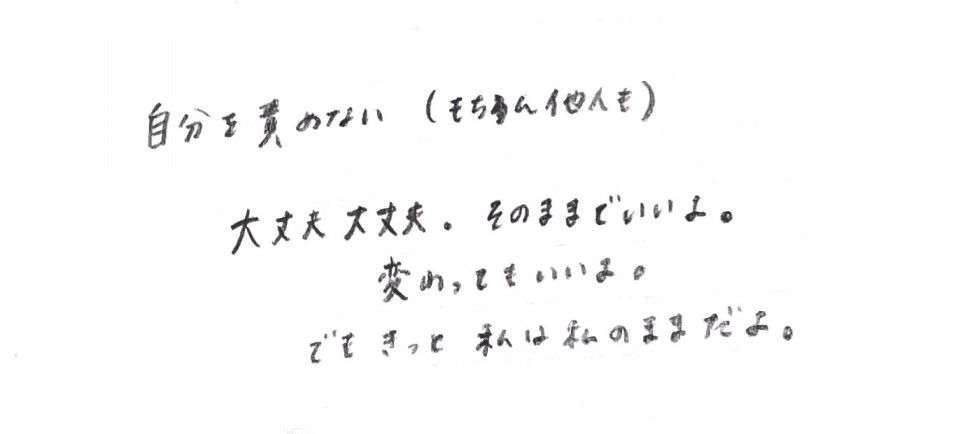 自分を責めない（もちろん他人も）
大丈夫 大丈夫。そのままでいいよ。
変わってもいいよ。
でもきっと私は私のままだよ。